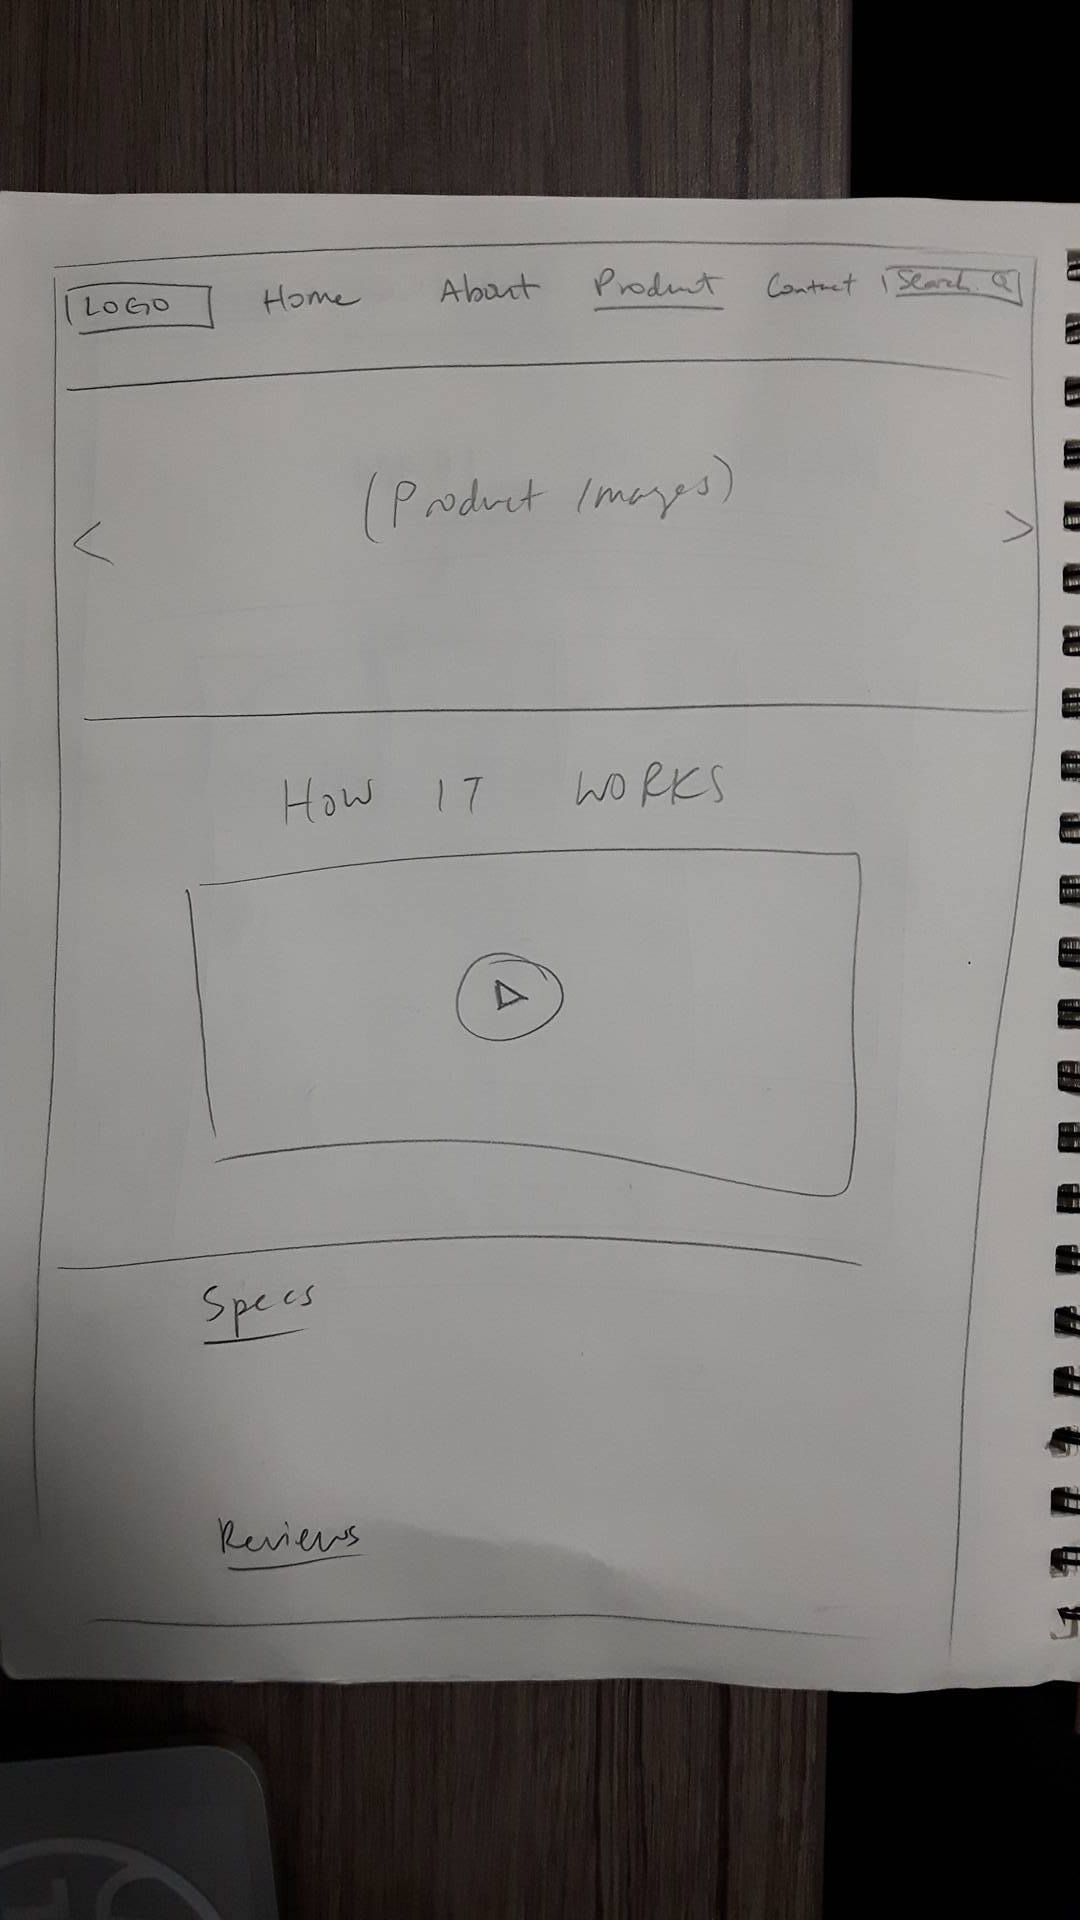 LOGO Home About Product Contact Search
(Product Images)
HOW IT WORKS
Specs
Reviews